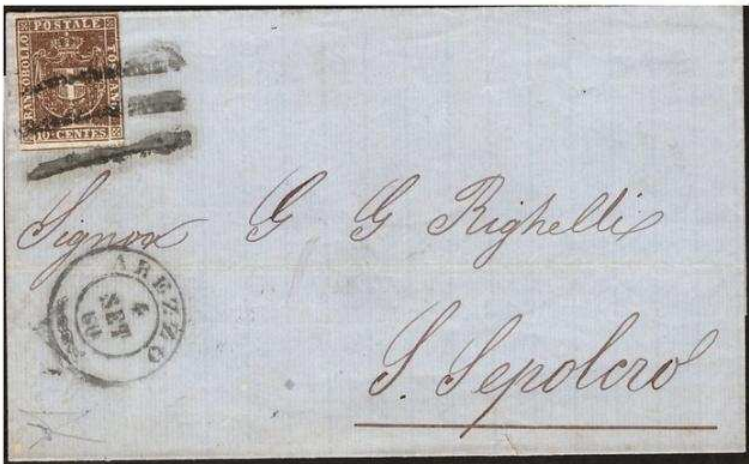 FRANCOBOLLO
POSTALE
TOSCANO
10 CENTES
Signor G G Righelli
AREZZO
4
SET
60
S. Sepolcro